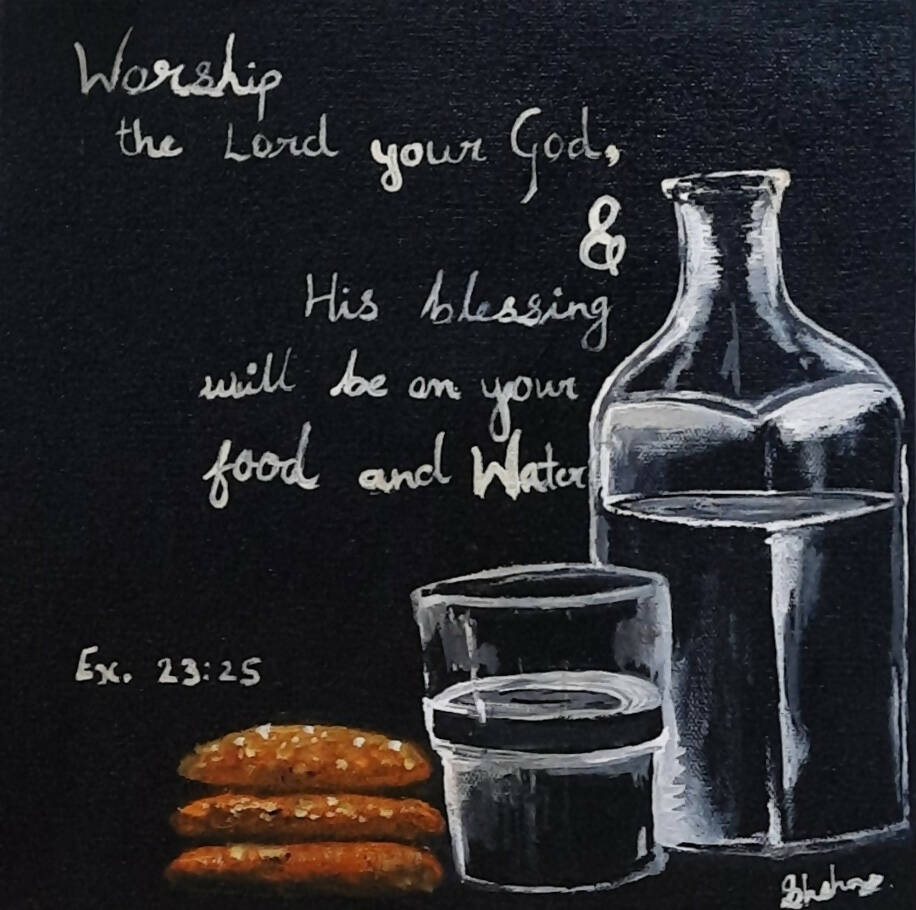 Worship
the Lord your God,
&
His blessing
will be on your
food and Water
Ex. 23:25